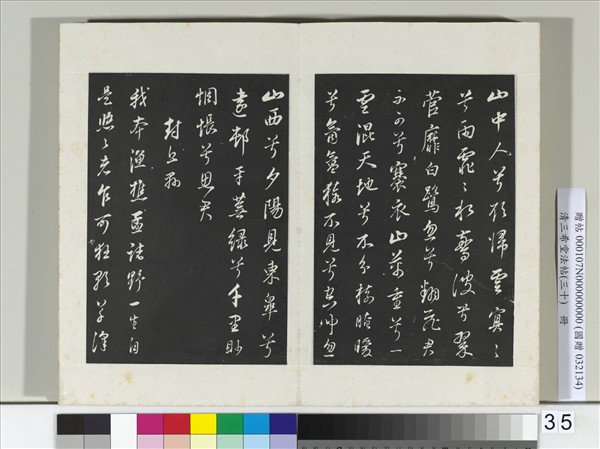 山中人兮欲歸雲冥〻
兮雨霏〻水驚波兮翠
菅靡白鷺忽兮翻飛君
不可兮褰衣山萬重兮一
雲混天地兮不分樹晻曖
兮氛氳猿不見兮空聞忽
山西兮夕陽見東皋兮
遠邨平蕪綠兮千里眇
惆悵兮思君
封丘縣
我本漁樵孟諸野一生自
是悠〻者乍可狂歌草澤
贈帖 000107N000000000 (國贈 032134)
清三希堂法帖(三十) 冊
35